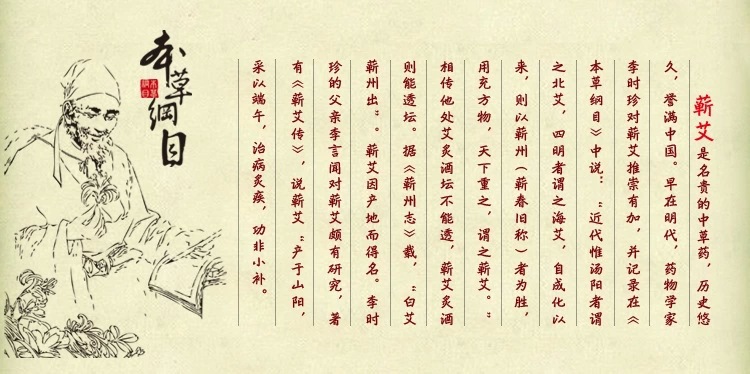 蕲艾是名贵的中草药，历史悠
久，誉满中国。早在明代，药物学家
李时珍对蕲艾推崇有加，并记录在《
本草纲目》中说：“近代惟汤阳者谓
之北艾，四明者谓之海艾，自成化以
来，则以蕲州（蕲春旧称）者为胜，
用充方物，天下重之，谓之蕲艾。”
相传他处艾灸酒坛不能透，蕲艾灸酒
则能透坛。据《蕲州志》载，“白艾
蕲州出”。蕲艾因产地而得名。李时
珍的父亲李言闻对蕲艾颇有研究，著
有《蕲艾传》，说蕲艾“产于山阳，
采以端午，治病灸疾，功非小补。
本草綱目